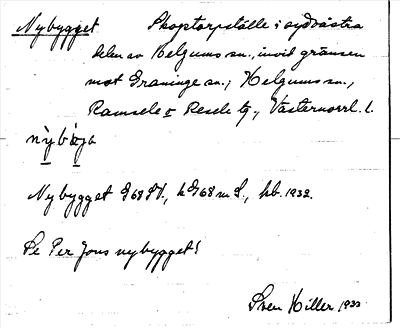 Nybygget Skogtorpställe i sydvästra
delen av Helgums sn., invid gränsen
mot Graninge sn.; Helgums sn.,
Ramsele o Resele tg., Västernorrl. l.
nỳbỳgja
Nybygget G68SV., h G68 m S., hb. 1933.
Se Per Jons nybygget!
Sven Hiller 1933